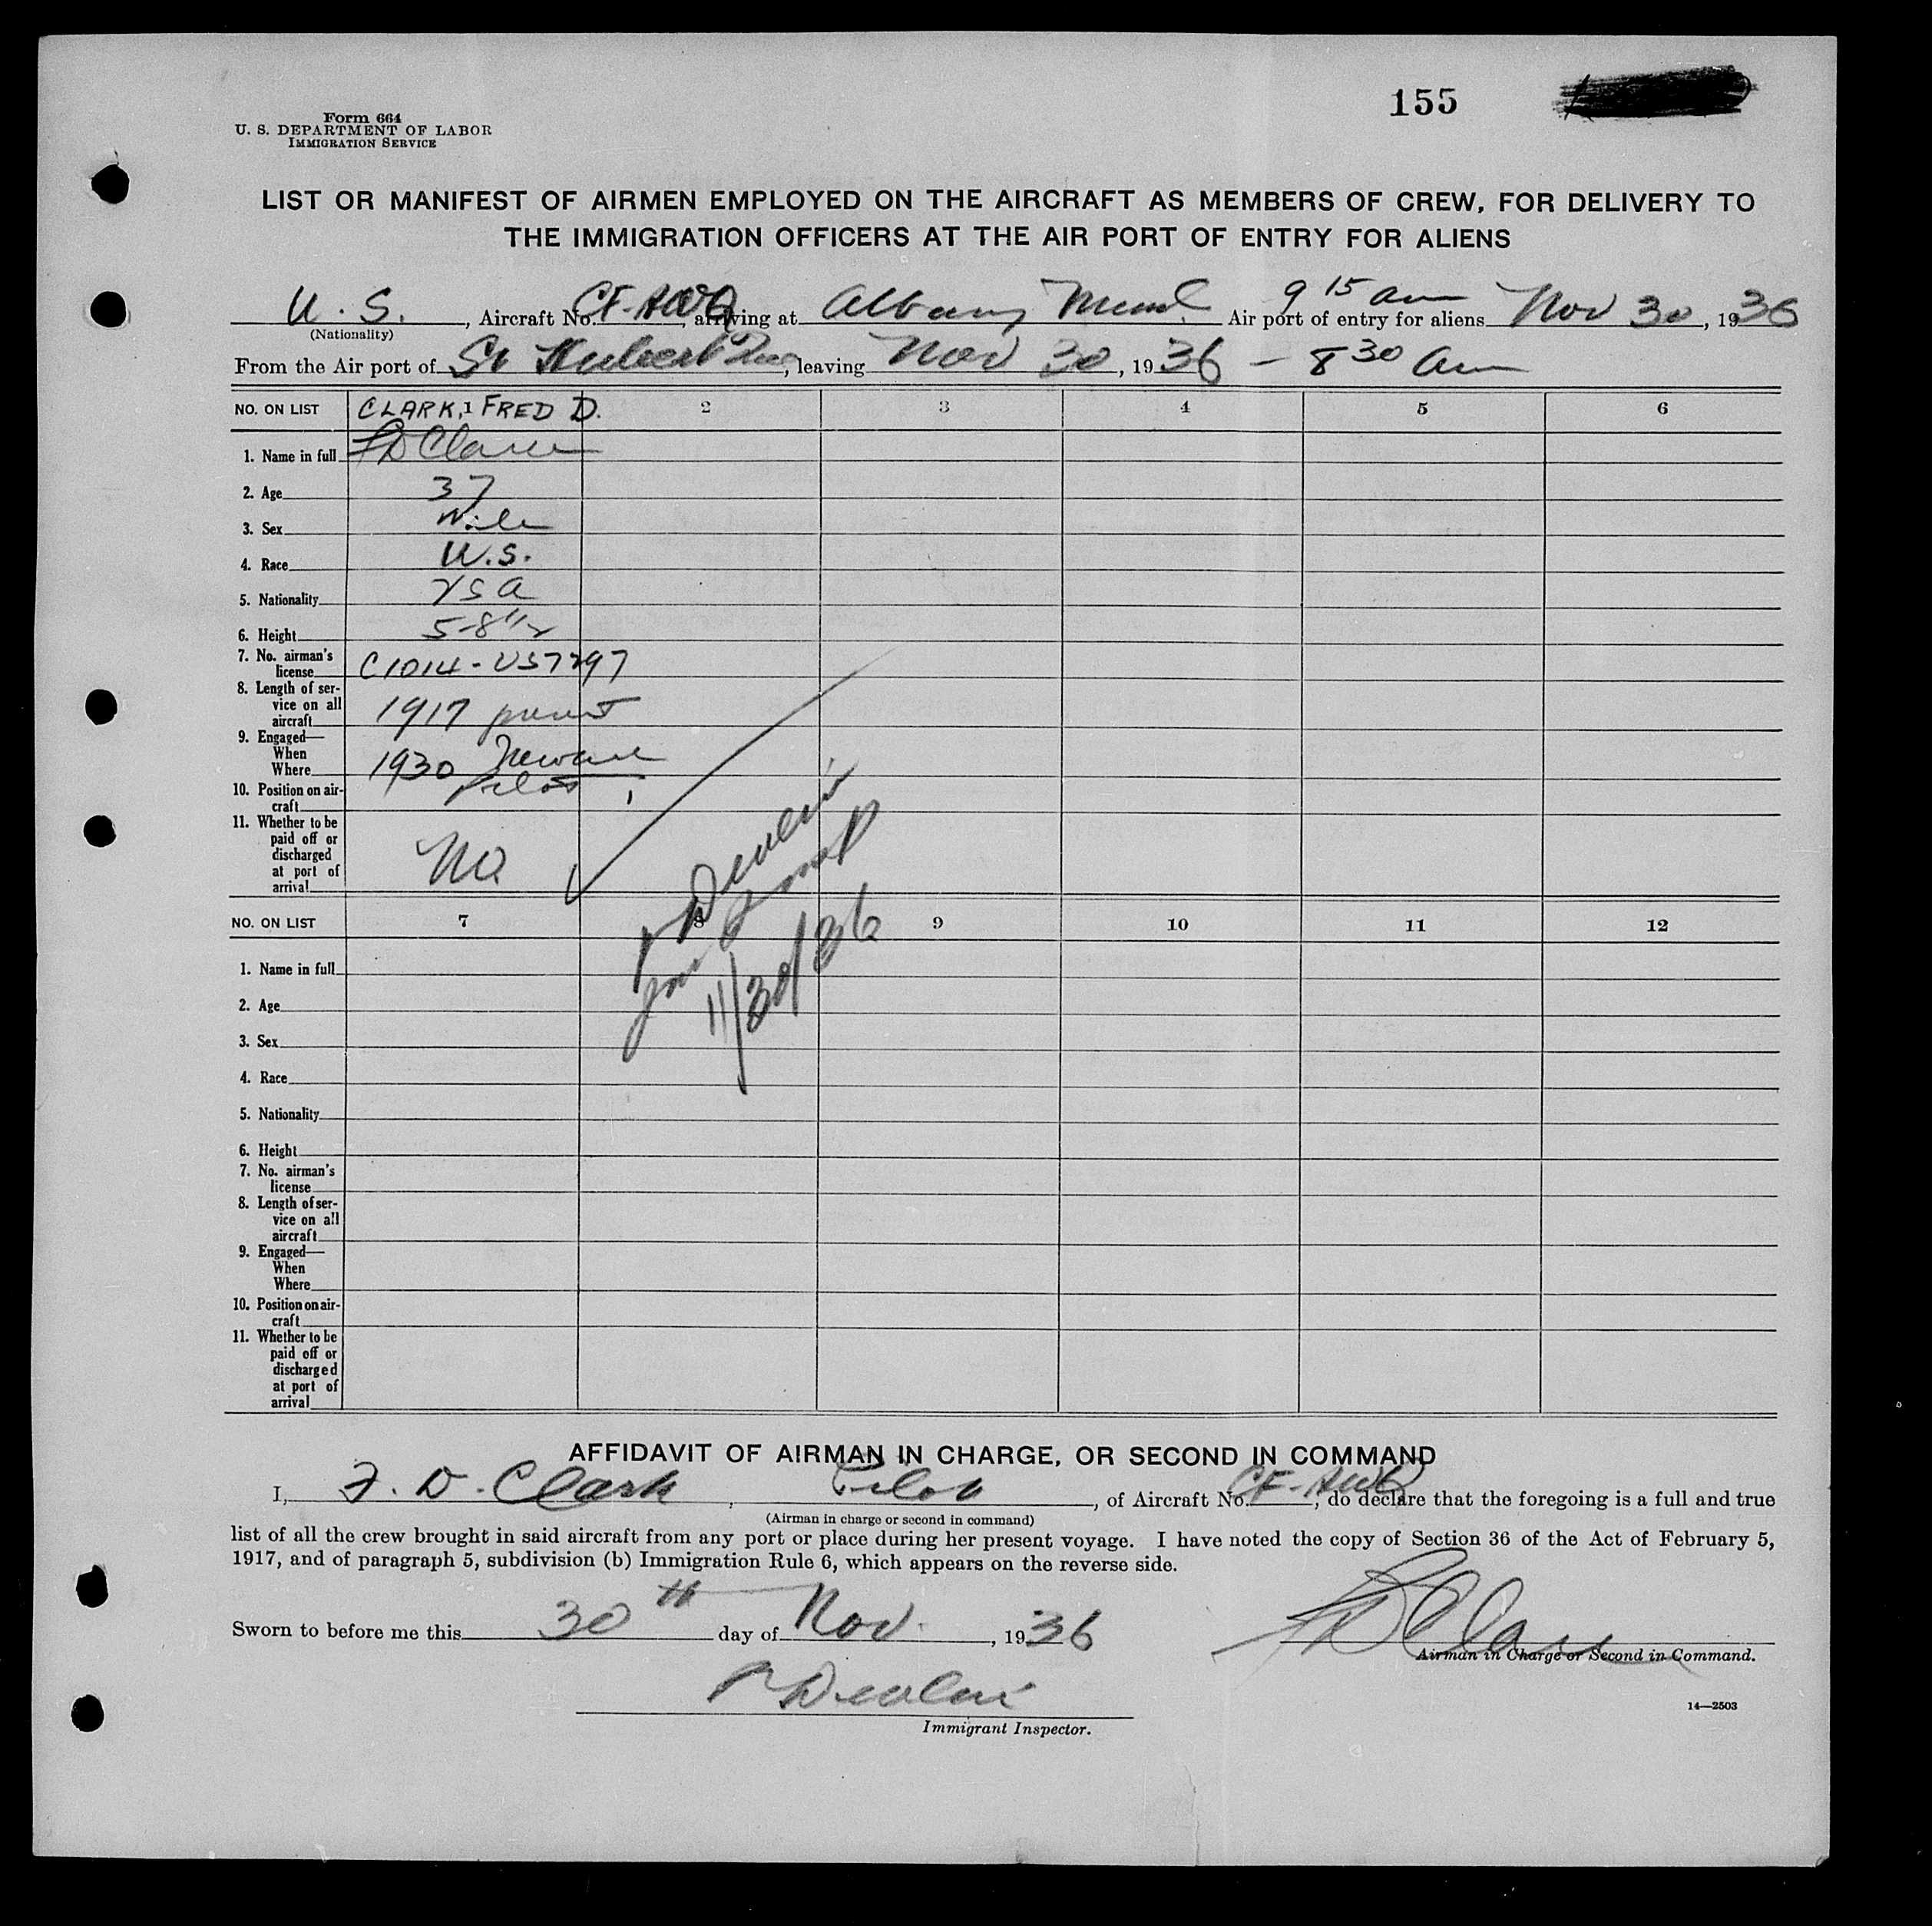 155
Form 664
U. S. DEPARTMENT OF LABOR
IMMIGRATION SERVICE
LIST OR MANIFEST OF AIRMEN EMPLOYED ON THE AIRCRAFT AS MEMBERS OF CREW, FOR DELIVERY TO
THE IMMIGRATION OFFICERS AT THE AIR PORT OF ENTRY FOR ALIENS
U. S., Aircraft No. arriving at Albany Air port of entry for aliens 9 15 am Nov 30, 1936
(Nationality)
From the Air port of St Hubert, leaving Nov 30, 1936 - 8 30 am
NO. ON LIST 1 CLARK, FRED D. 2 3 4 5 6
1. Name in full FD Clark
2. Age 37
3. Sex
4. Race U.S.
5. Nationality USA
6. Height 5-8 1/2
7. No. airman's
license C1014-US7297
8. Length of ser-
vice on all
aircraft 1917
9. Engaged—
When
Where 1930 Newark
10. Position on air-
craft Pilot
11. Whether to be
paid off or
discharged
at port of
arrival No
11/30/36
NO. ON LIST 7 8 9 10 11 12
1. Name in full
2. Age
3. Sex
4. Race
5. Nationality
6. Height
7. No. airman's
license
8. Length of ser-
vice on all
aircraft
9. Engaged—
When
Where
10. Position on air-
craft
11. Whether to be
paid off or
discharged
at port of
arrival
AFFIDAVIT OF AIRMAN IN CHARGE, OR SECOND IN COMMAND
I, F. D. Clark, Pilot, of Aircraft No., do declare that the foregoing is a full and true
(Airman in charge or second in command)
list of all the crew brought in said aircraft from any port or place during her present voyage. I have noted the copy of Section 36 of the Act of February 5,
1917, and of paragraph 5, subdivision (b) Immigration Rule 6, which appears on the reverse side.
Sworn to before me this 30th day of Nov., 1936
FD Clark
Airman in Charge or Second in Command.
P Devlin
Immigrant Inspector.
14—2503